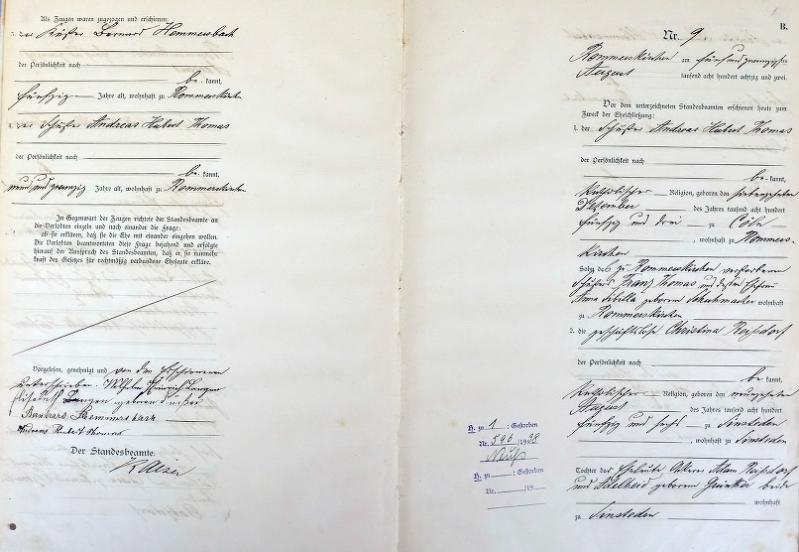 Als Zeugen waren zugezogen und erschienen:
3. der Küster Bernard Hemmersbach
der Persönlichkeit nach
be kannt,
fünfzig Jahre alt, wohnhaft zu Rommerskirchen
4. der Schuster Andreas Hubert Thomas
der Persönlichkeit nach
be kannt,
neun und zwanzig Jahre alt, wohnhaft zu Rommerskirchen
In Gegenwart der Zeugen richtete der Standesbeamte an
die Verlobten einzeln und nach einander die Frage:
ob sie erklären, daß sie die Ehe mit einander eingehen wollen.
Die Verlobten beantworteten diese Frage bejahend und erfolgte
hierauf der Ausspruch des Standesbeamten, daß er sie nunmehr
kraft des Gesetzes für rechtmäßig verbundene Eheleute erkläre.
Vorgelesen, genehmigt und von den Erschienenen
unterschrieben. Wilhelm Heinrich Langen
Elisabeth Langen geborene
Bernhard Hemmersbach
Andreas Hubert Thomas
Der Standesbeamte.
Kaiser
B.
Nr. 9
Rommerskirchen am fünf und zwanzigsten
August tausend acht hundert achtzig und zwei.
Vor dem unterzeichneten Standesbeamten erschienen heute zum
Zweck der Eheschließung:
1. der Schuster Andreas Hubert Thomas
der Persönlichkeit nach
be kannt,
katholischer Religion, geboren den
Dezember des Jahres tausend acht hundert
fünfzig und drei zu Cöln
, wohnhaft zu Rommers-
kirchen
Sohn des zu Rommerskirchen verstorbenen
Schusters Franz Thomas und dessen Ehefrau
Anna Sibilla geborene Schuhmacher wohnhaft
zu Rommerskirchen
2. die geschäftslose Christina Reisdorf
der Persönlichkeit nach
be kannt,
katholischer Religion, geboren den neunzehnten
August des Jahres tausend acht hundert
fünfzig und sechs zu Sinsteden
, wohnhaft zu Sinsteden
Tochter der Eheleute Ackerer Adam Reisdorf
und Adelheid geborene beide
wohnhaft
zu Sinsteden
H. zu 1 : Gestorben
Nr. 596/1938
Neuß
H. zu : Gestorben
Nr. /19